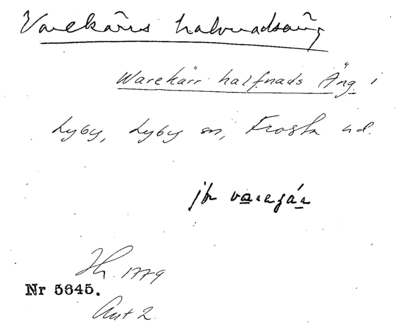 Varekärrs halvnadsäng
Warekärr halfnads Äng i
Lyby, Lyby sn, Frosta hd.
jfr
Hh. 1779
Nr 5645.
Akt 2.